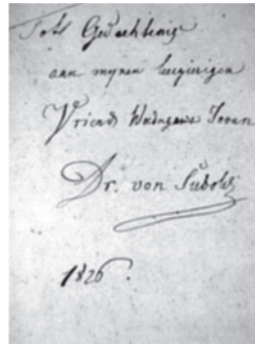 Tot Gedachtenis
aan mynen leergierigen
Vriend Udagawa Joan
Dr. von Siebold
1826.